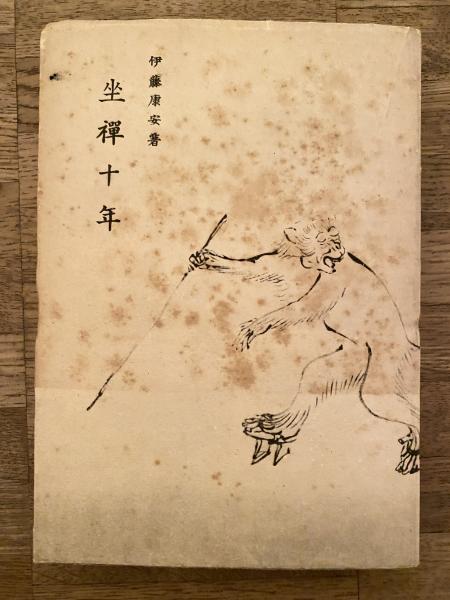 伊藤康安著
坐禪十年